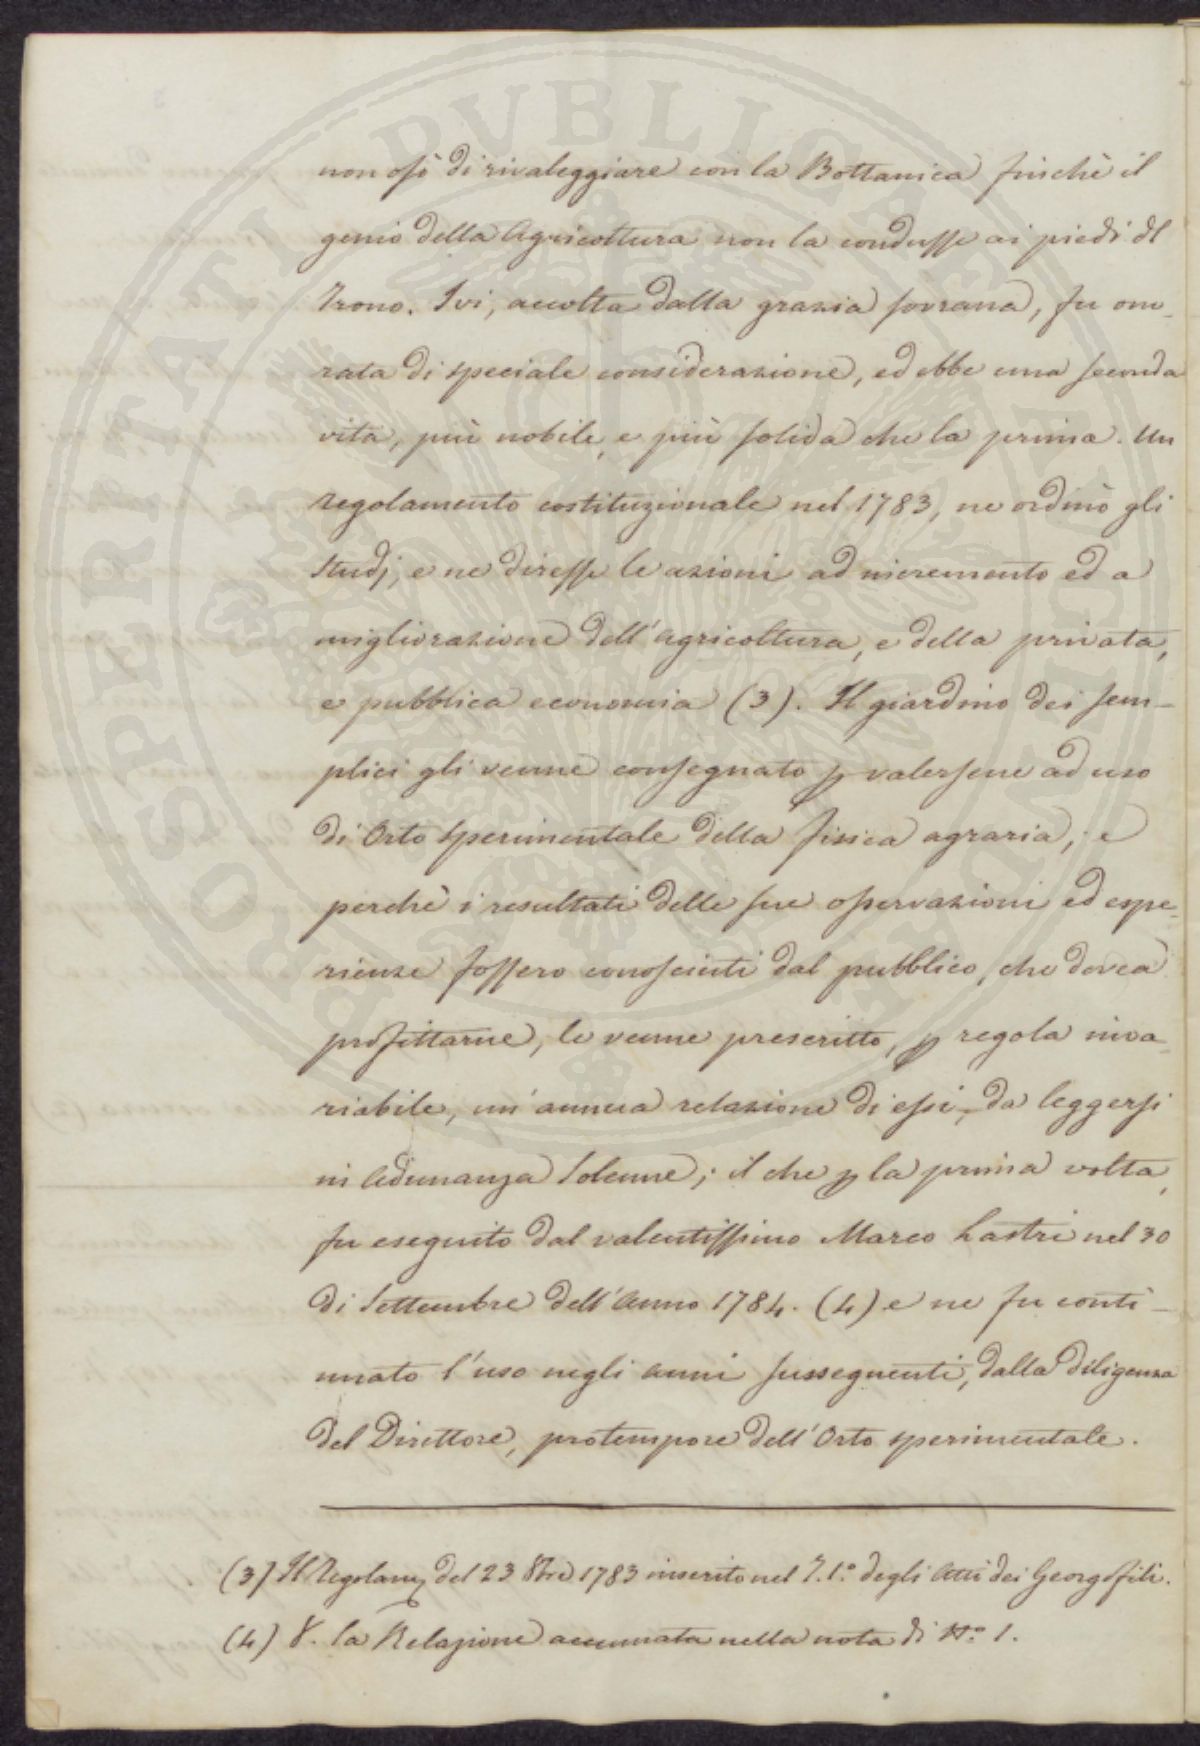 non osò di rivaleggiare con la Bottanica finchè il
genio della Agricoltura non la condusse ai piedi dl
Trono. Ivi, accolta dalla grazia sovrana, fu ono-
rata di speciale considerazione, ed ebbe una seconda
vita, più nobile, e più solida che la prima. Un
regolamento costituzionale nel 1783, ne ordinò gli
studj, e ne diresse le azioni ad incremento ed a
migliorazione dell'agricoltura, e della privata,
e pubblica economia (3). Il giardino dei sem-
plici gli venne consegnato p valersene ad uso
di Orto sperimentale della fisica agraria; e
perchè i resultati delle sue osservazioni ed espe-
rienze fossero conosciuti dal pubblico, che dovea
profittarne, le venne prescritto, p regola inva-
riabile, un'annua relazione di essi, da leggersi
in Adunanza Solenne; il che p la prima volta,
fu eseguito dal valentissimo Marco Lastri nel 30
di Settembre dell'Anno 1784. (4) e ne fu conti-
nuato l'uso negli anni susseguenti, dalla diligenza
del Direttore, protempore dell'Orto sperimentale.
(3) Il Regolam del 23 8bre 1783 inserito nel T. 1.° degli Atti dei Georgofili.
(4) V. la Relazione accennata nella nota di N.° 1.
PROSPERITATI PUBLICAE AUGENDAE